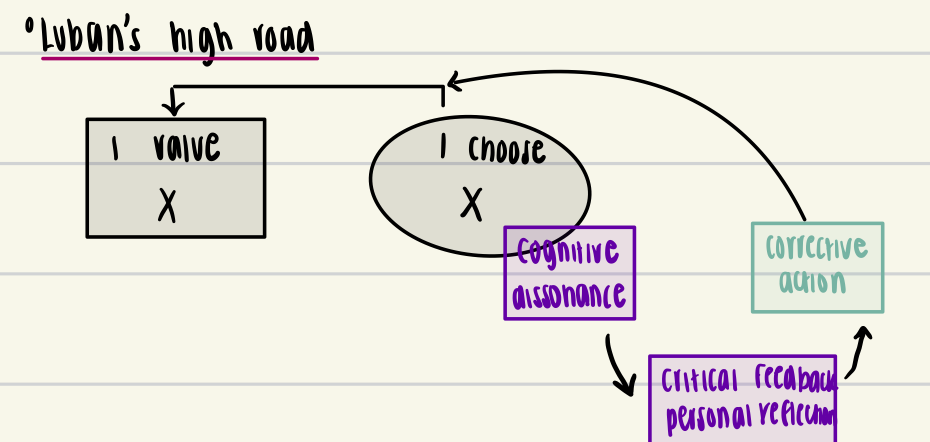 Luban's high road
I value
X
I choose
X
cognitive
dissonance
corrective
action
critical feedback
personal reflection